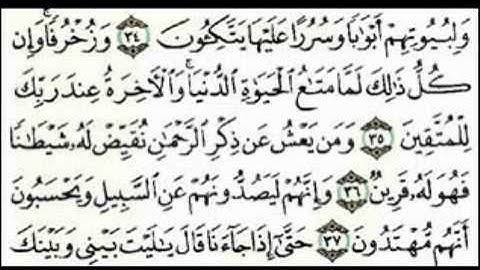 وَلِبُيُوتِهِمْ أَبْوَٰبًا وَسُرُرًا عَلَيْهَا يَتَّكِـُٔونَ ٣٤ وَزُخْرُفًا وَإِن
كُلُّ ذَٰلِكَ لَمَّا مَتَـٰعُ ٱلْحَيَوٰةِ ٱلدُّنْيَا وَٱلْـَٔاخِرَةُ عِندَ رَبِّكَ
لِلْمُتَّقِينَ ٣٥ وَمَن يَعْشُ عَن ذِكْرِ ٱلرَّحْمَـٰنِ نُقَيِّضْ لَهُۥ شَيْطَـٰنًا
فَهُوَ لَهُۥ قَرِينٌ ٣٦ وَإِنَّهُمْ لَيَصُدُّونَهُمْ عَنِ ٱلسَّبِيلِ وَيَحْسَبُونَ
أَنَّهُم مُّهْتَدُونَ ٣٧ حَتَّىٰٓ إِذَا جَآءَنَا قَالَ يَـٰلَيْتَ بَيْنِى وَبَيْنَكَ